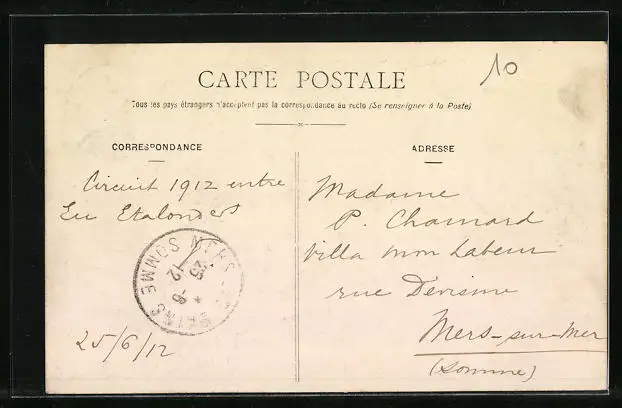 CARTE POSTALE
10
Tous les pays étrangers n'acceptent pas la correspondance au recto (Se renseigner à la Poste)
CORRESPONDANCE
Circuit 1912 entre
Eu Etalondes
MERS SOMME
25 -6
12
25/6/12
ADRESSE
Madame
P. Chamard
Villa mon Labeur
rue Devisme
Mers-sur-Mer
(Somme)